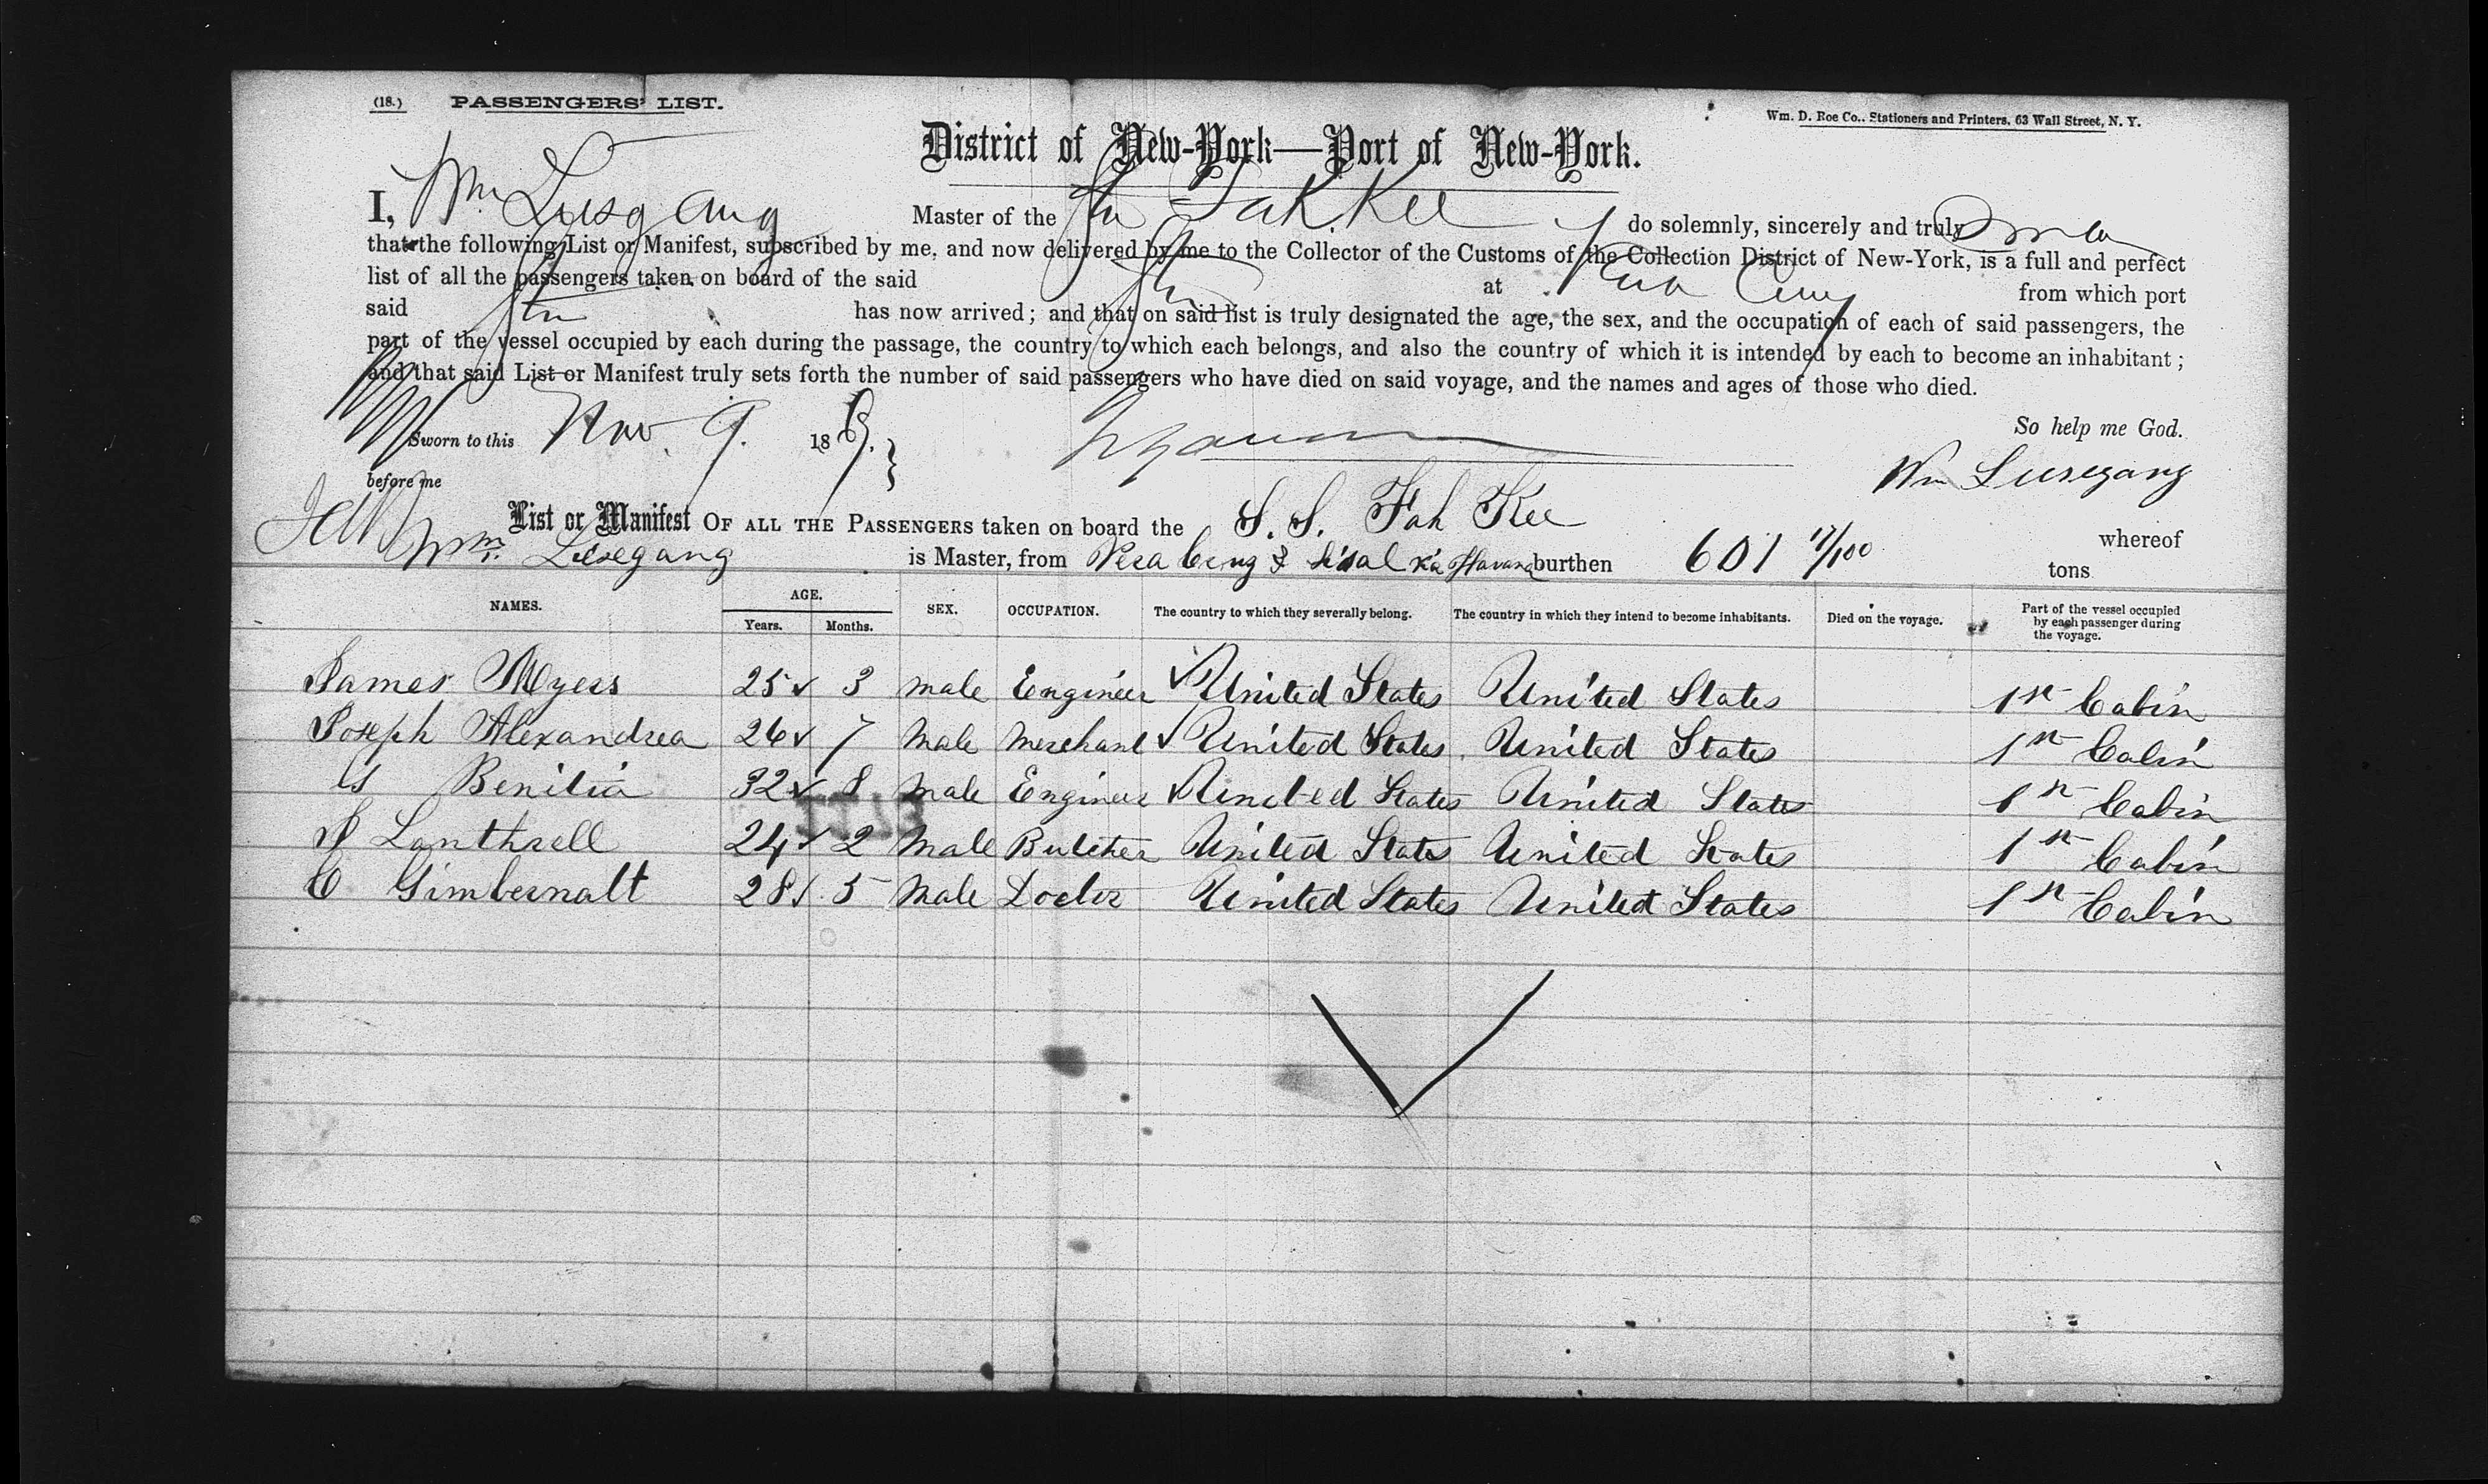 (18.) PASSENGERS' LIST.
Wm. D. Roe Co., Stationers and Printers, 63 Wall Street, N. Y.
District of New-York—Port of New-York.
I, Wm Lusgang Master of the Str Fah Kee do solemnly, sincerely and truly
that the following List or Manifest, subscribed by me, and now delivered by me to the Collector of the Customs of the Collection District of New-York, is a full and perfect
list of all the passengers taken on board of the said Str at Vera Cruz from which port
said Str has now arrived; and that on said list is truly designated the age, the sex, and the occupation of each of said passengers, the
part of the vessel occupied by each during the passage, the country to which each belongs, and also the country of which it is intended by each to become an inhabitant;
and that said List or Manifest truly sets forth the number of said passengers who have died on said voyage, and the names and ages of those who died.
So help me God.
Sworn to this Nov. 9. 18
Wm Lusegang
before me
List or Manifest OF ALL THE PASSENGERS taken on board the S. S. Fah Kee whereof
Wm. Lusegang is Master, from Vera Cruz & Sisal via Havana burthen 601 17/100 tons
NAMES. AGE. SEX. OCCUPATION. The country to which they severally belong. The country in which they intend to become inhabitants. Died on the voyage. Part of the vessel occupied by each passenger during the voyage.
Years. Months.
James Myers 25 3 male Engineer United States United States 1st Cabin
Joseph Alexandrea 26 7 Male Merchant United States United States 1st Cabin
Benitia 32 8 Male Engineer United States United States 1st Cabin
Lanthrell 24 2 Male Butcher United States United States 1st Cabin
C Gimbernatt 28 5 Male Doctor United States United States 1st Cabin